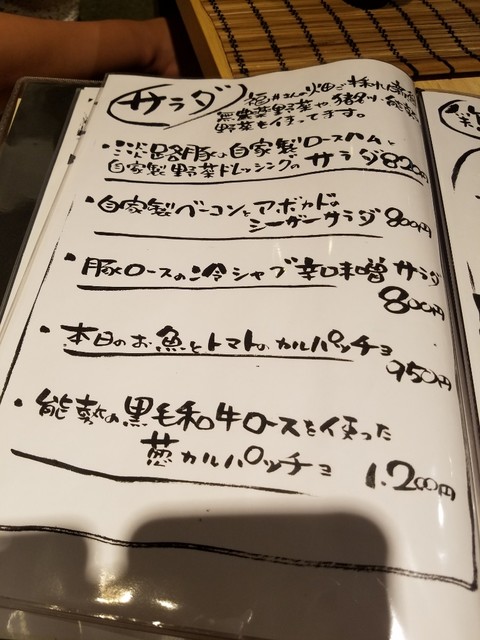 サラダ
堀井さんの畑で採れた
無農薬野菜や猪名川、能勢
野菜を使ってます。
・淡路豚の自家製ロースハムと
自家製野菜ドレッシングのサラダ 820円
・自家製ベーコンとアボカドの
シーザーサラダ 800円
・豚ロースの冷シャブ辛味噌サラダ
800円
・本日のお魚とトマトのカルパッチョ
950円
・能勢の黒毛和牛ロースを使った
葱カルパッチョ 1.200円